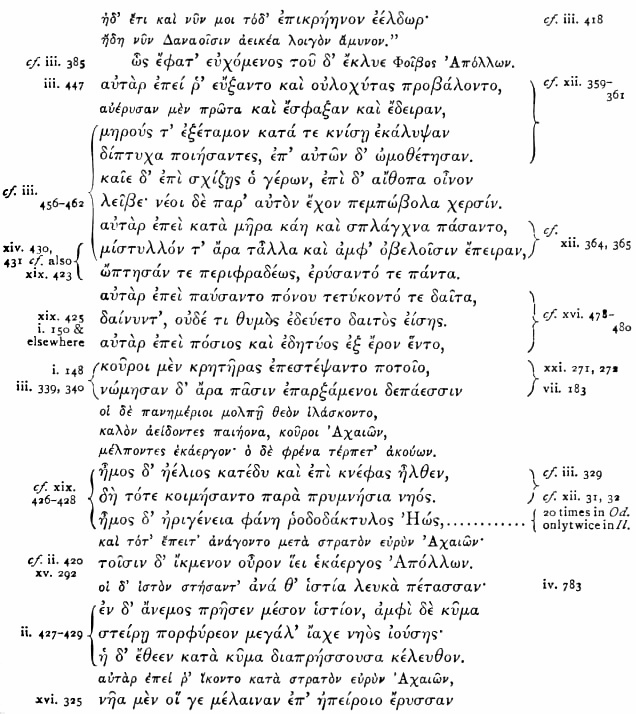 ἠδ' ἔτι καὶ νῦν μοι τόδ' ἐπικρήηνον ἐέλδωρ· cf. iii. 418
ἤδη νῦν Δαναοῖσιν ἀεικέα λοιγὸν ἄμυνον.”
cf. iii. 385 ὣς ἔφατ' εὐχόμενος τοῦ δ' ἔκλυε Φοῖβος Ἀπόλλων.
iii. 447 αὐτὰρ ἐπεί ῥ' εὔξαντο καὶ οὐλοχύτας προβάλοντο, cf. xii. 359–
361
αὐέρυσαν μὲν πρῶτα καὶ ἔσφαξαν καὶ ἔδειραν,
μηρούς τ' ἐξέταμον κατά τε κνίσῃ ἐκάλυψαν
δίπτυχα ποιήσαντες, ἐπ' αὐτῶν δ' ὠμοθέτησαν.
καῖε δ' ἐπὶ σχίζῃς ὁ γέρων, ἐπὶ δ' αἴθοπα οἶνον
cf. iii.
456–462 λεῖβε· νέοι δὲ παρ' αὐτὸν ἔχον πεμπώβολα χερσίν.
αὐτὰρ ἐπεὶ κατὰ μῆρα κάη καὶ σπλάγχνα πάσαντο, cf.
xii. 364, 365
xiv. 430,
431 cf. also
xix. 423 μίστυλλόν τ' ἄρα τἆλλα καὶ ἀμφ' ὀβελοῖσιν ἔπειραν,
ὤπτησάν τε περιφραδέως, ἐρύσαντό τε πάντα.
αὐτὰρ ἐπεὶ παύσαντο πόνου τετύκοντό τε δαῖτα,
xix. 425 δαίνυντ', οὐδέ τι θυμὸς ἐδεύετο δαιτὸς ἐίσης. cf. xvi. 478–
480
i. 150 &
elsewhere αὐτὰρ ἐπεὶ πόσιος καὶ ἐδητύος ἐξ ἔρον ἕντο,
i. 148 κοῦροι μὲν κρητῆρας ἐπεστέψαντο ποτοῖο, xxi. 271, 272
iii. 339, 340 νώμησαν δ' ἄρα πᾶσιν ἐπαρξάμενοι δεπάεσσιν vii. 183
οἱ δὲ πανημέριοι μολπῇ θεὸν ἱλάσκοντο,
καλὸν ἀείδοντες παιήονα, κοῦροι Ἀχαιῶν,
μέλποντες ἑκάεργον· ὁ δὲ φρένα τέρπετ' ἀκούων.
cf. xix.
426–428 ἦμος δ' ἠέλιος κατέδυ καὶ ἐπὶ κνέφας ἦλθεν, cf. iii. 329
δὴ τότε κοιμήσαντο παρὰ πρυμνήσια νηός. cf. xii. 31, 32
ἦμος δ' ἠριγένεια φάνη ῥοδοδάκτυλος Ἠώς,............ 20 times in Od.
only twice in Il.
καὶ τότ' ἔπειτ' ἀνάγοντο μετὰ στρατὸν εὐρὺν Ἀχαιῶν·
cf. ii. 420
xv. 292 τοῖσιν δ' ἴκμενον οὖρον ἵει ἑκάεργος Ἀπόλλων.
οἱ δ' ἱστὸν στήσαντ' ἀνά θ' ἱστία λευκὰ πέτασσαν· iv. 783
ἐν δ' ἄνεμος πρῆσεν μέσον ἱστίον, ἀμφὶ δὲ κῦμα
ii. 427–429 στείρῃ πορφύρεον μεγάλ' ἴαχε νηὸς ἰούσης·
ἡ δ' ἔθεεν κατὰ κῦμα διαπρήσσουσα κέλευθον.
αὐτὰρ ἐπεί ῥ' ἵκοντο κατὰ στρατὸν εὐρὺν Ἀχαιῶν,
xvi. 325 νῆα μὲν οἵ γε μέλαιναν ἐπ' ἠπείροιο ἔρυσσαν